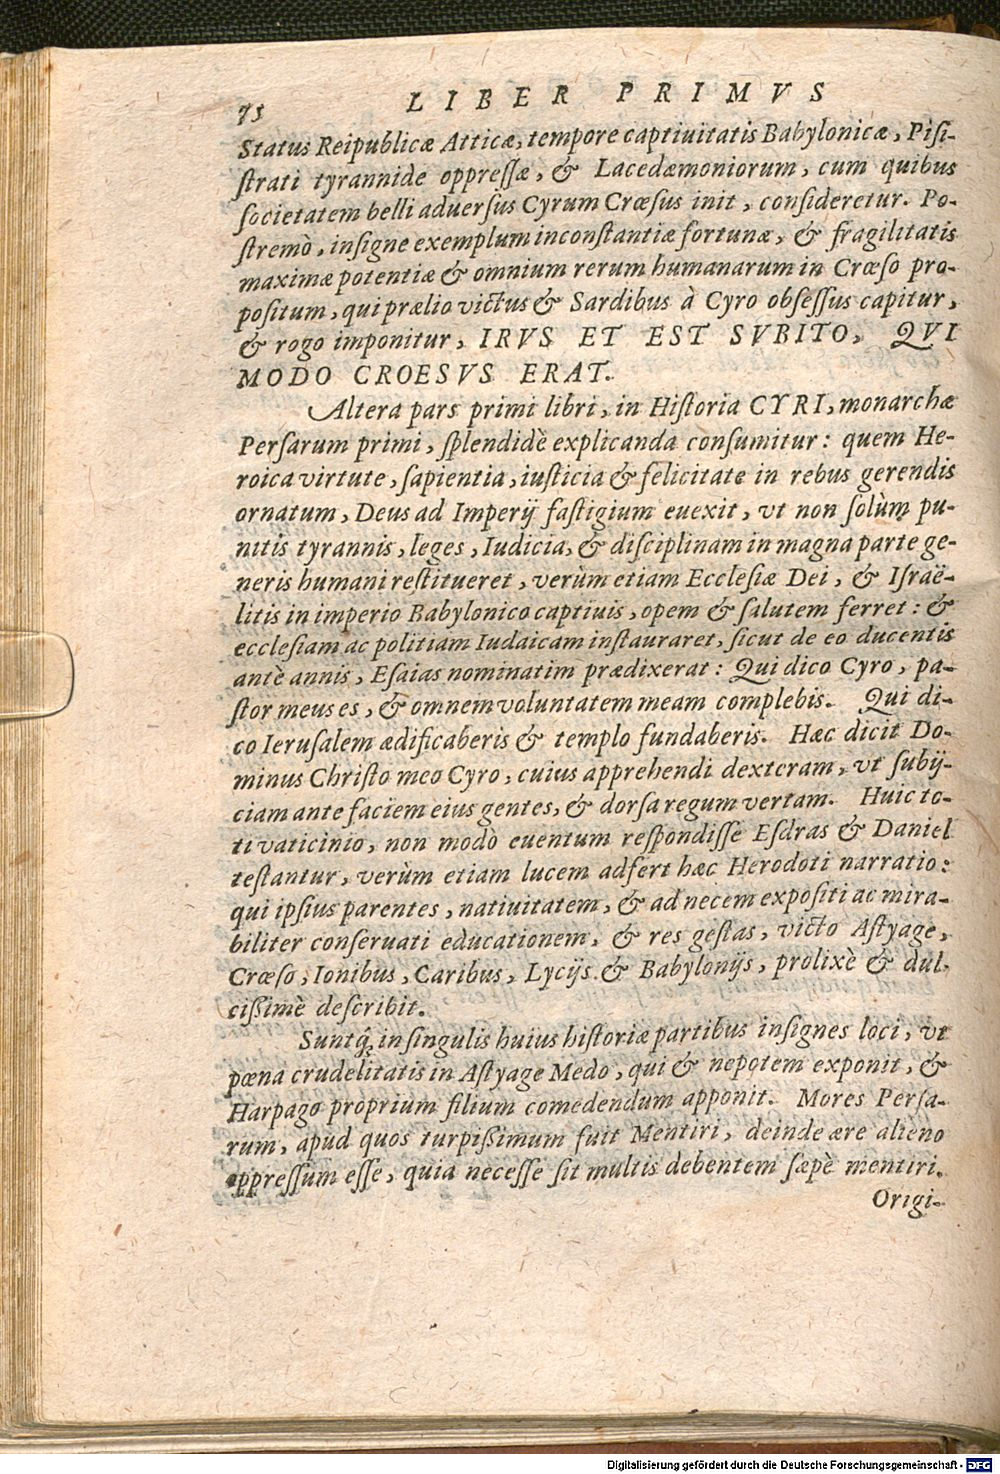 75
LIBER PRIMVS
Status Reipublicæ Atticæ, tempore captiuitatis Babylonicæ, Pisi-
strati tyrannide oppressæ, & Lacedæmoniorum, cum quibus
societatem belli aduersus Cyrum Crœsus init, consideretur. Po-
stremò, insigne exemplum inconstantiæ fortunæ, & fragilitatis
maximæ potentiæ & omnium rerum humanarum in Crœso pro-
positum, qui prælio victus & Sardibus à Cyro obsessus capitur,
& rogo imponitur, IRVS ET EST SVBITO, QVI
MODO CROESVS ERAT.
Altera pars primi libri, in Historia CYRI, monarchæ
Persarum primi, splendidè explicanda consumitur: quem He-
roica virtute, sapientia, iusticia & felicitate in rebus gerendis
ornatum, Deus ad Imperij fastigium euexit, vt non solùm pu-
nitis tyrannis, leges, Iudicia, & disciplinam in magna parte ge-
neris humani restitueret, verùm etiam Ecclesiæ Dei, & Israë-
litis in imperio Babylonico captiuis, opem & salutem ferret: &
ecclesiam ac politiam Iudaicam instauraret, sicut de eo ducentis
antè annis, Esaias nominatim prædixerat: Qui dico Cyro, pa-
stor meus es, & omnem voluntatem meam complebis. Qui di-
co Ierusalem ædificaberis & templo fundaberis. Hæc dicit Do-
minus Christo meo Cyro, cuius apprehendi dexteram, vt subij-
ciam ante faciem eius gentes, & dorsa regum vertam. Huic to-
ti vaticinio, non modò euentum respondisse Esdras & Daniel
testantur, verùm etiam lucem adfert hæc Herodoti narratio:
qui ipsius parentes, natiuitatem, & ad necem expositi ac mira-
biliter conseruati educationem, & res gestas, victo Astyage,
Crœso, Ionibus, Caribus, Lycijs & Babylonijs, prolixè & dul-
cißimè describit.
Suntq́; in singulis huius historiæ partibus insignes loci, vt
pœna crudelitatis in Astyage Medo, qui & nepotem exponit, &
Harpago proprium filium comedendum apponit. Mores Persa-
rum, apud quos turpißimum fuit Mentiri, deinde ære alieno
oppressum esse, quia necesse sit multis debentem sæpè mentiri.
Origi-
Digitalisierung gefördert durch die Deutsche Forschungsgemeinschaft - DFG